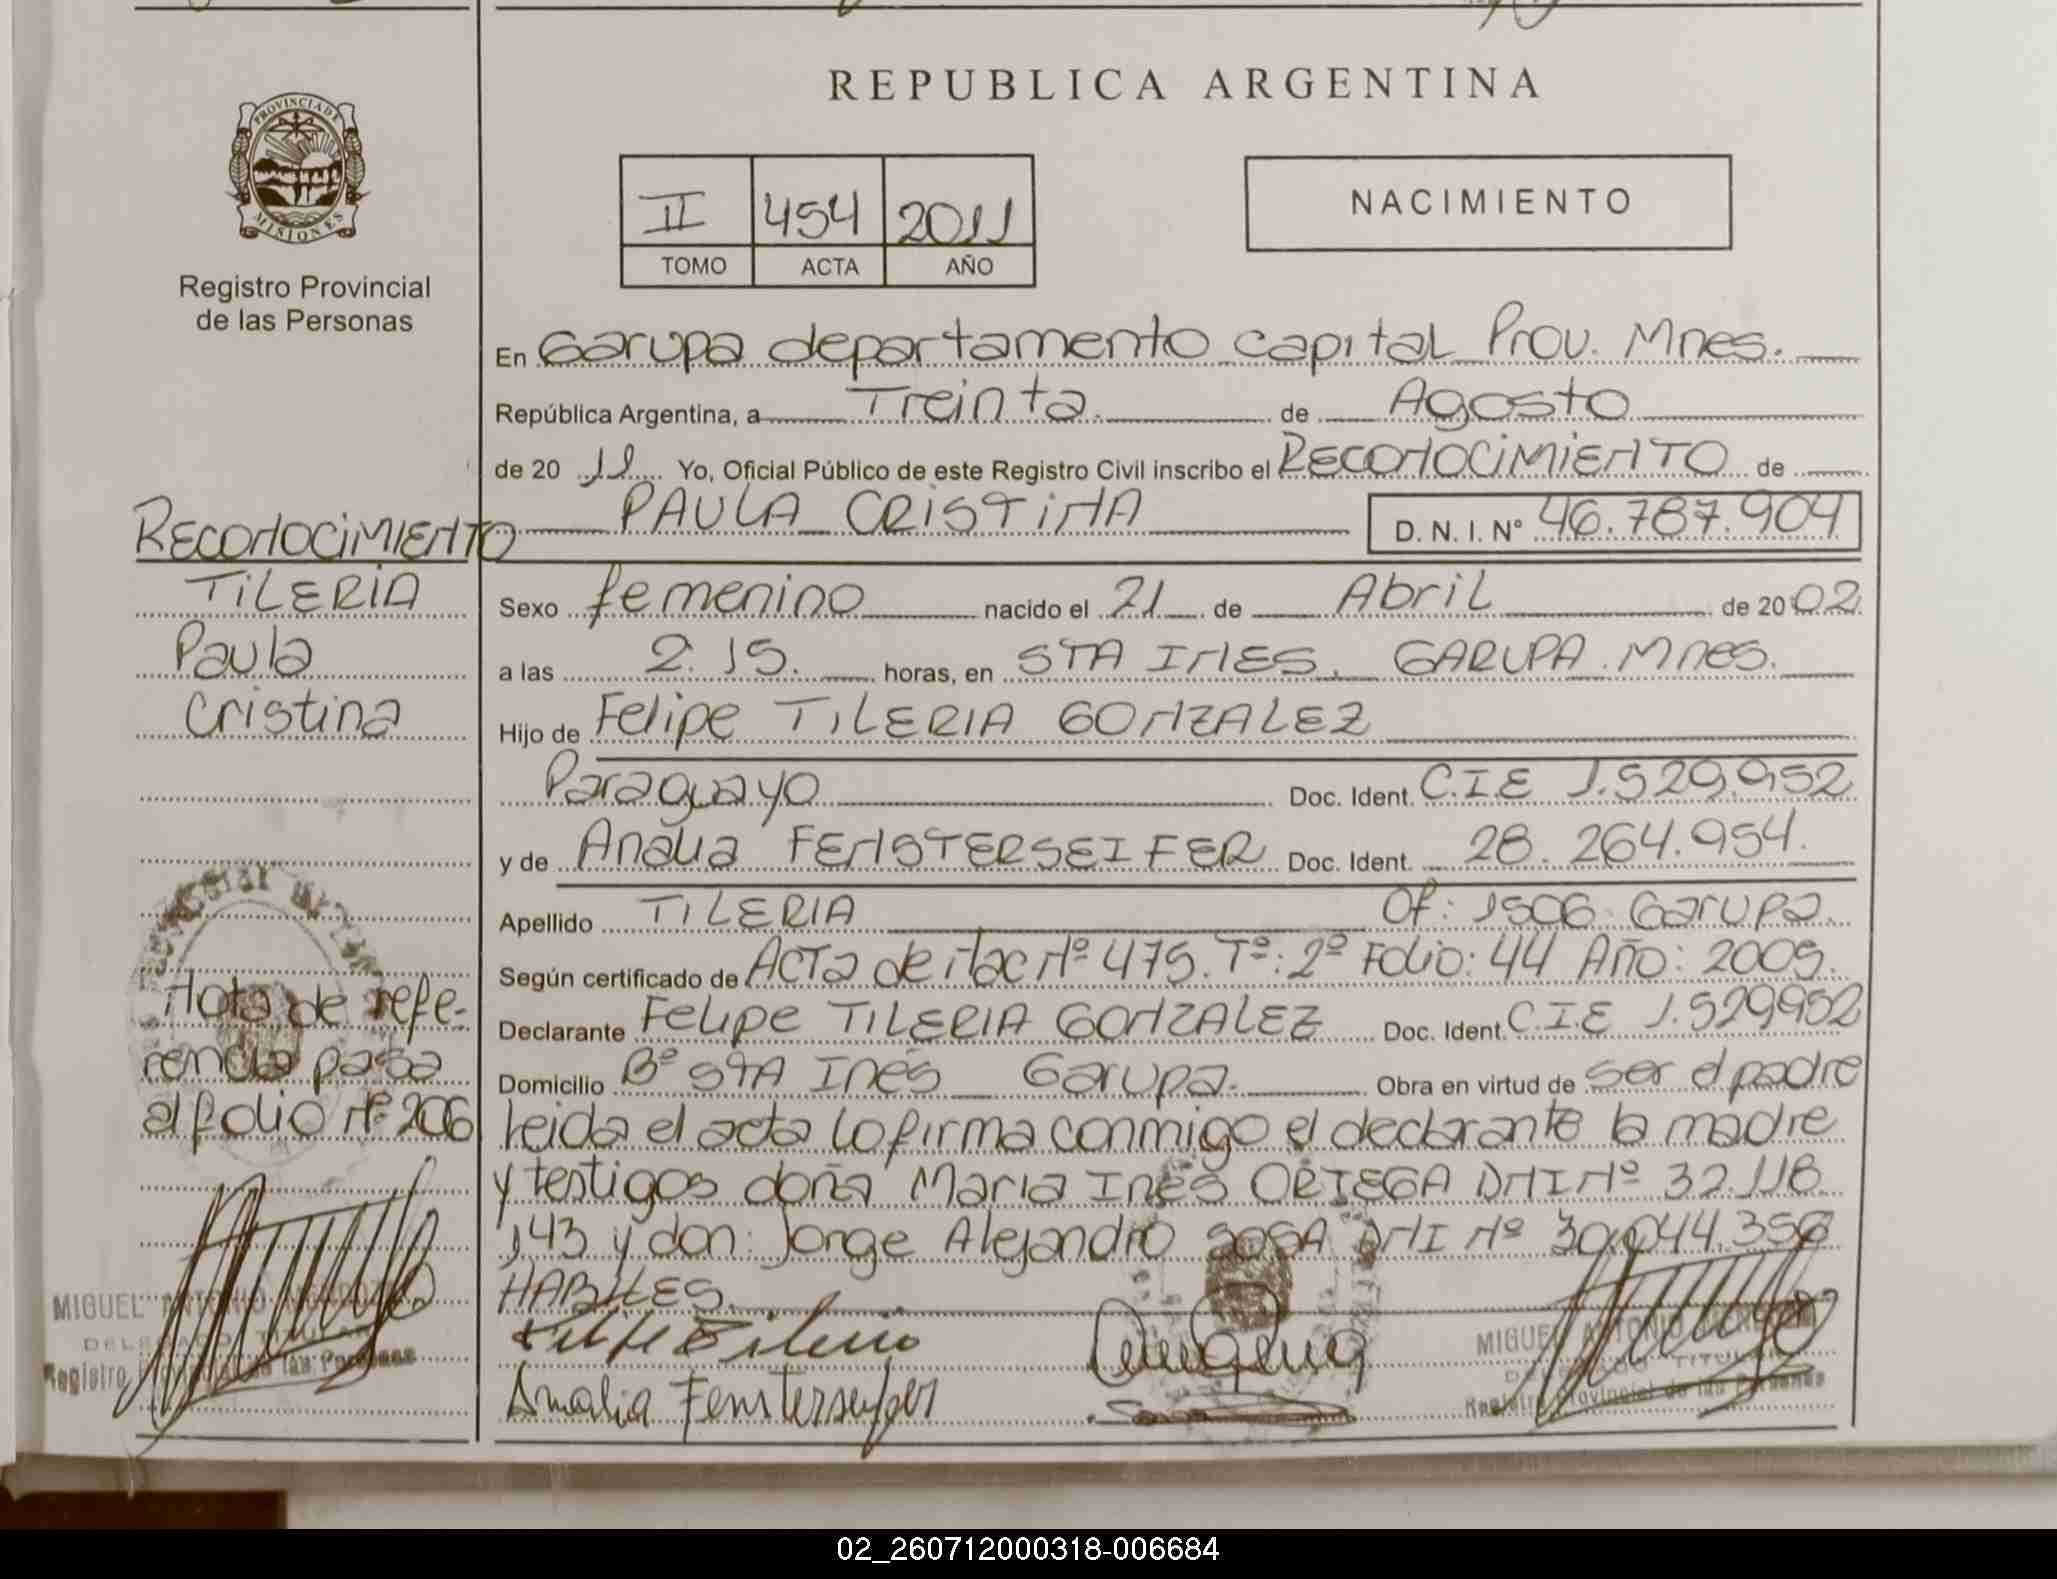 REPUBLICA ARGENTINA
PROVINCIA DE
MISIONES
Registro Provincial
de las Personas
II 454 2011
TOMO ACTA AÑO
NACIMIENTO
En Garupa departamento capital Prov. Mnes.
República Argentina, a Treinta. de Agosto
de 20 11 Yo, Oficial Público de este Registro Civil inscribo el RECONOCIMIENTO de
PAULA CRISTINA D. N. I. N° 46.787.904
Sexo femenino nacido el 21 de Abril de 20 02
a las 2.15. horas, en STA INES. GARUPA. Mnes.
Hijo de Felipe TILERIA GONZALEZ
Paraguayo Doc. Ident. C.I.E 1.529.952
y de Analia FENSTERSEIFER Doc. Ident. 28.264.954.
Apellido TILERIA Of: 1506 Garupa.
Según certificado de Acta de Nac Nº 475. Tº: 2º Folio: 44 Año: 2005.
Declarante Felipe TILERIA GONZALEZ Doc. Ident. C.I.E 1.529952
Domicilio Bº STA Inés Garupa. Obra en virtud de ser el padre
leida el acta lo firma conmigo el declarante la madre
y testigos doña Maria Inés ORTEGA DNI Nº 32.118
,143 y don: Jorge Alejandro SOSA DNI Nº 30.044.358
HABILES.
Analia Fensterseifer
MIGUEL ANTONIO
DELEGADO TITULAR
Registro Provincial de las Personas
RECONOCIMIENTO
TILERIA
Paula
Cristina
Nota de refe-
rencia pasa
al folio Nº 206
MIGUEL ANTONIO
DELEGADO TITULAR
Registro Provincial de las Personas
02_260712000318-006684